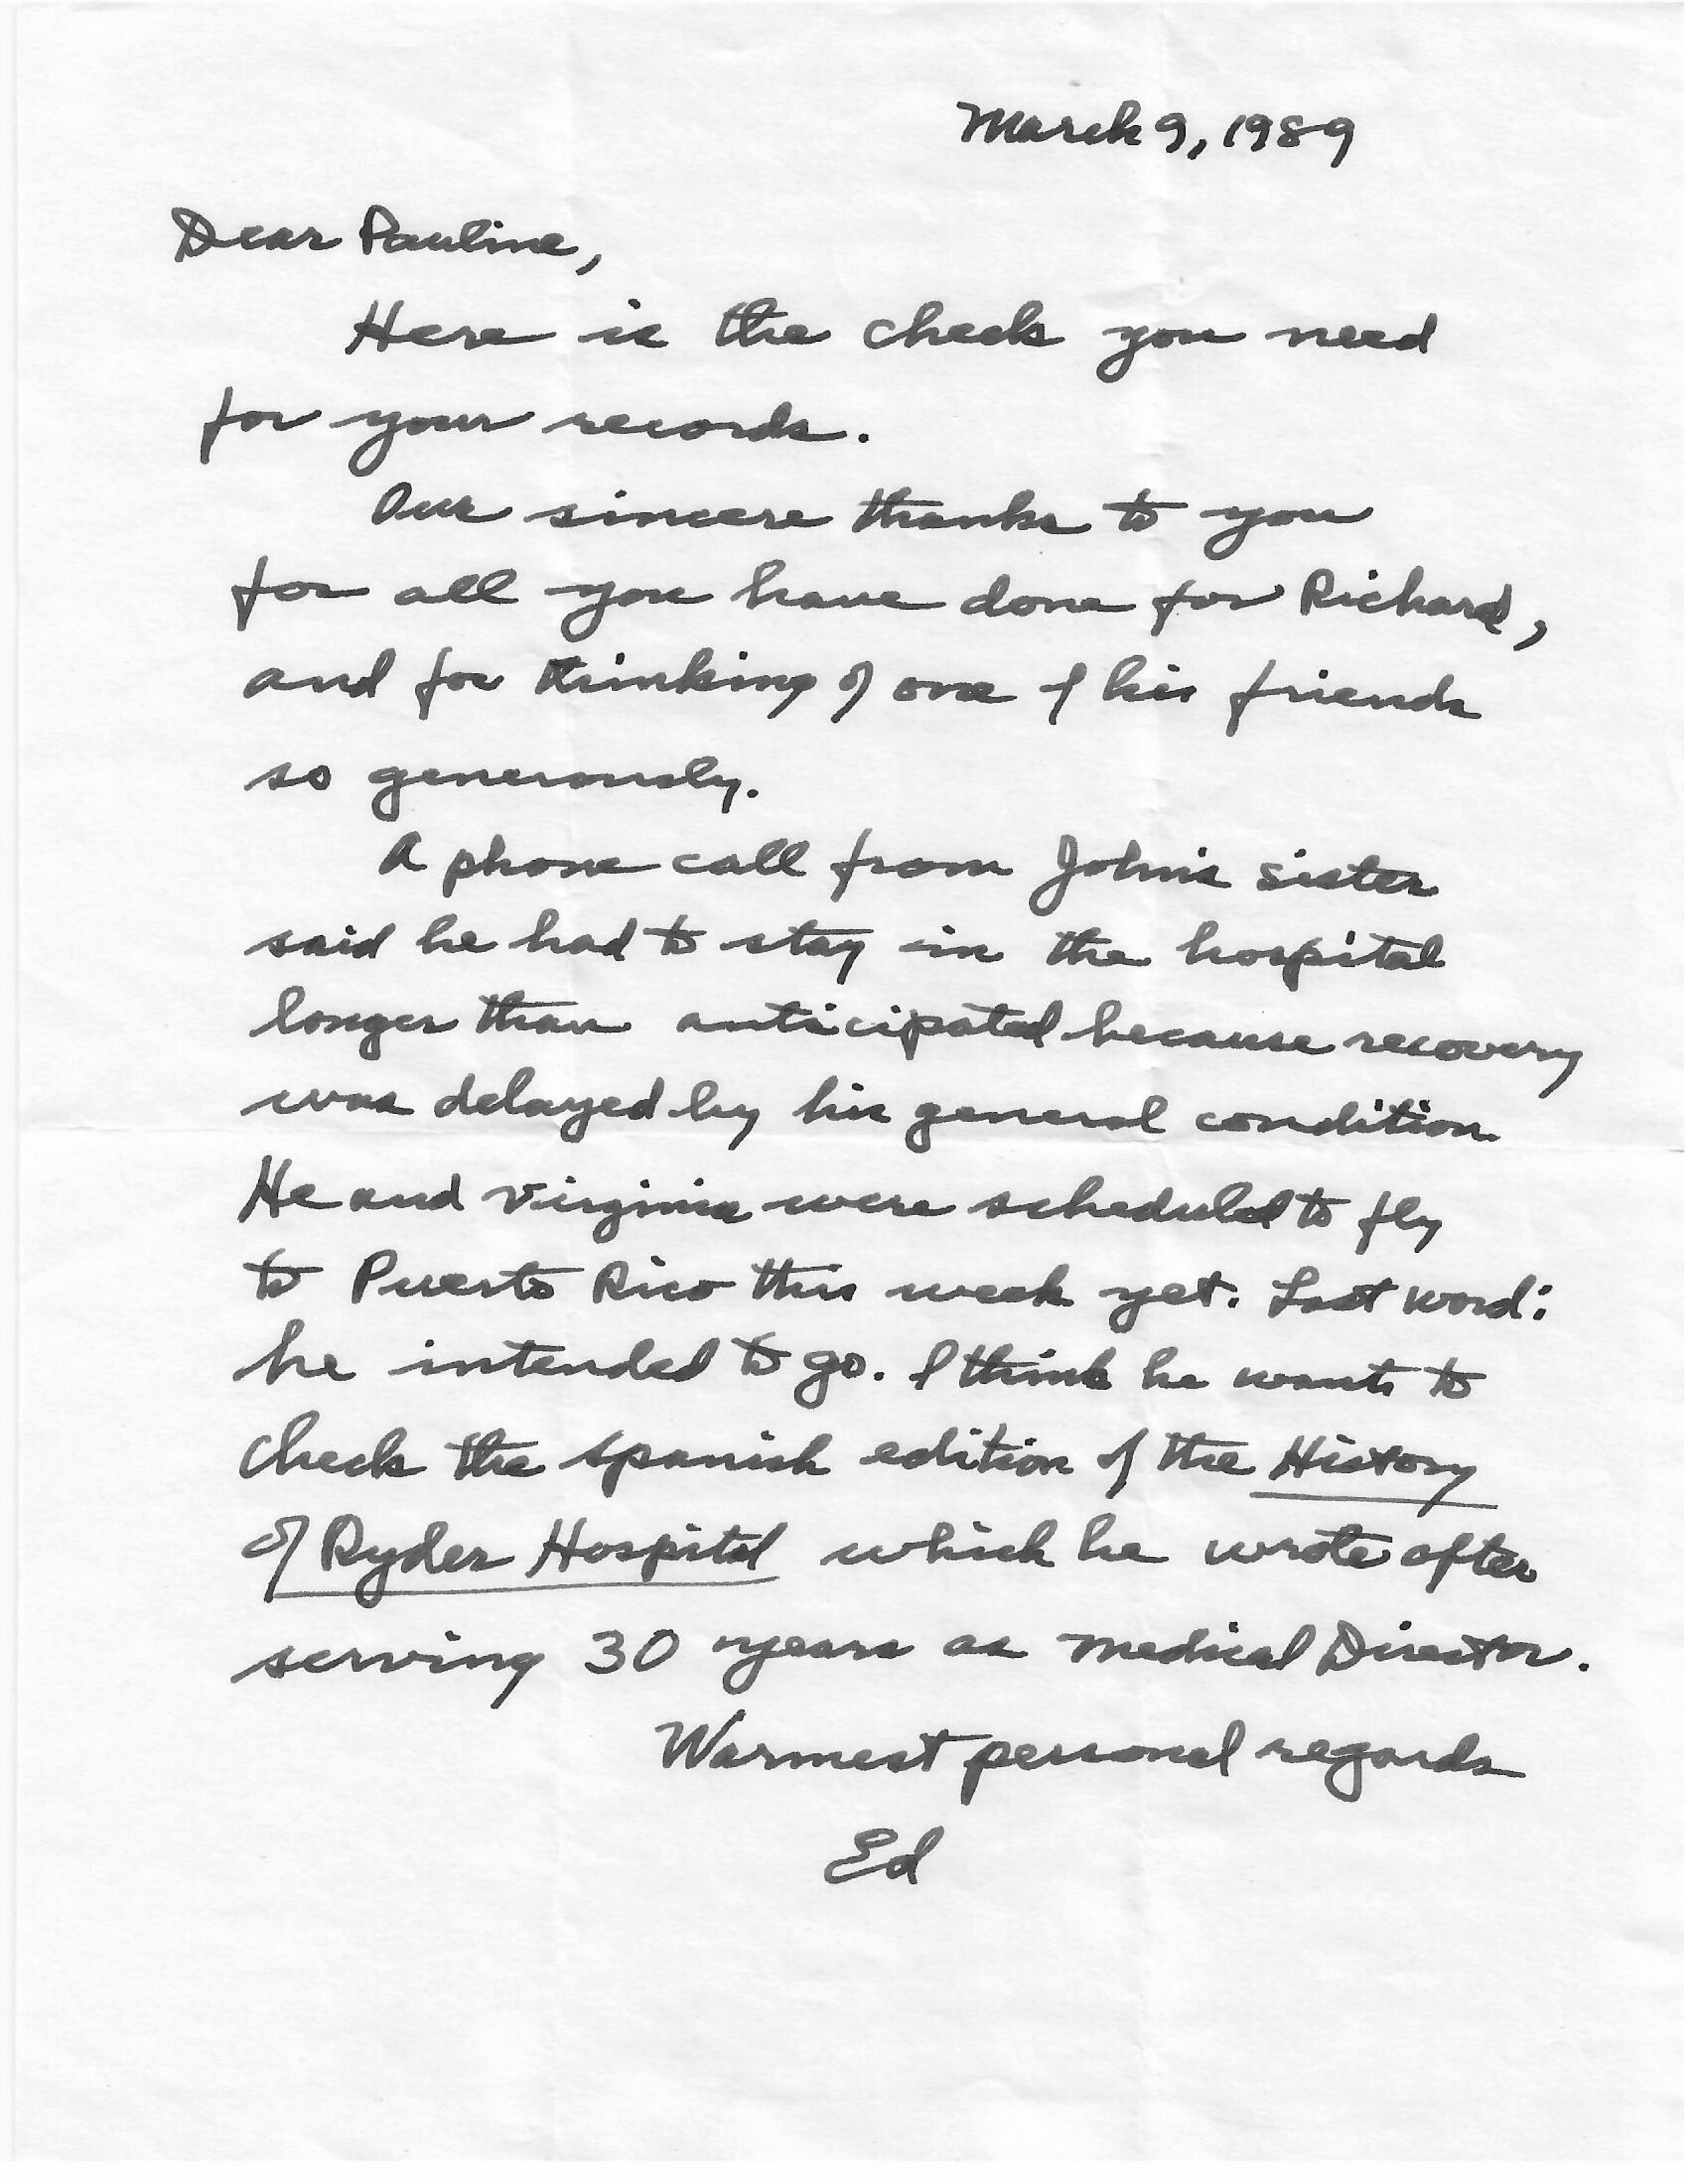 March 9, 1989
Dear Pauline,
Here is the check you need
for your records.
Our sincere thanks to you
for all you have done for Richard,
and for thinking of one of his friends
so generously.
A phone call from John's sister
said he had to stay in the hospital
longer than anticipated because recovery
was delayed by his general condition.
He and Virginia were scheduled to fly
to Puerto Rico this week yet. Last word:
he intended to go. I think he wants to
check the Spanish edition of the History
of Ryder Hospital which he wrote after
serving 30 years as Medical Director.
Warmest personal regards
Ed